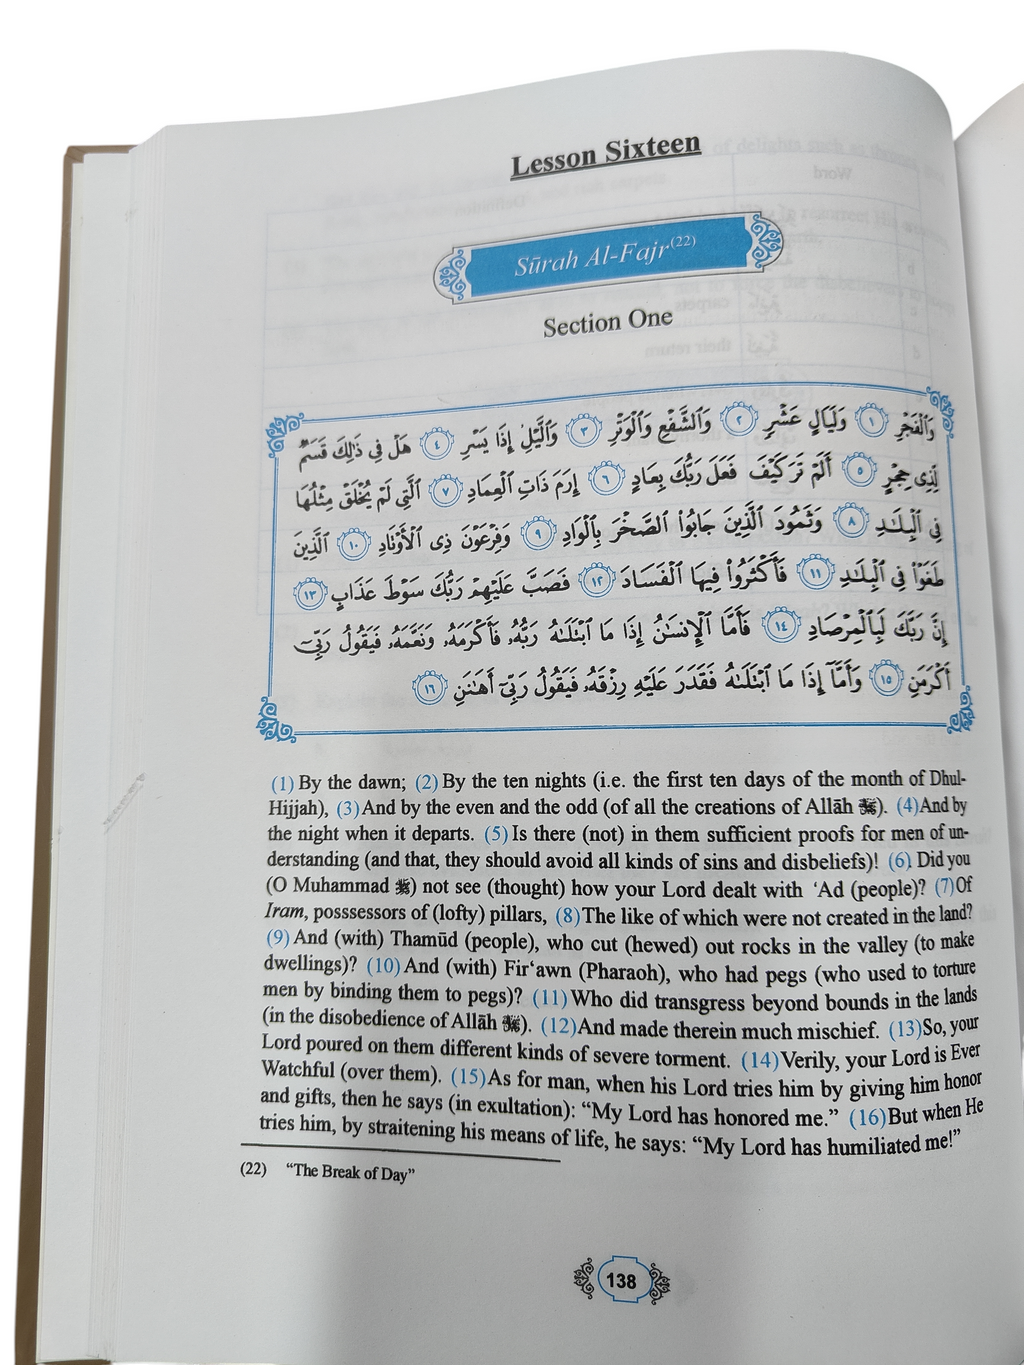 Lesson Sixteen
Sūrah Al-Fajr(22)
Section One
وَٱلْفَجْرِ ١ وَلَيَالٍ عَشْرٍ ٢ وَٱلشَّفْعِ وَٱلْوَتْرِ ٣ وَٱلَّيْلِ إِذَا يَسْرِ ٤ هَلْ فِى ذَٰلِكَ قَسَمٌ
لِّذِى حِجْرٍ ٥ أَلَمْ تَرَ كَيْفَ فَعَلَ رَبُّكَ بِعَادٍ ٦ إِرَمَ ذَاتِ ٱلْعِمَادِ ٧ ٱلَّتِى لَمْ يُخْلَقْ مِثْلُهَا
فِى ٱلْبِلَـٰدِ ٨ وَثَمُودَ ٱلَّذِينَ جَابُوا۟ ٱلصَّخْرَ بِٱلْوَادِ ٩ وَفِرْعَوْنَ ذِى ٱلْأَوْتَادِ ١٠ ٱلَّذِينَ
طَغَوْا۟ فِى ٱلْبِلَـٰدِ ١١ فَأَكْثَرُوا۟ فِيهَا ٱلْفَسَادَ ١٢ فَصَبَّ عَلَيْهِمْ رَبُّكَ سَوْطَ عَذَابٍ ١٣
إِنَّ رَبَّكَ لَبِٱلْمِرْصَادِ ١٤ فَأَمَّا ٱلْإِنسَـٰنُ إِذَا مَا ٱبْتَلَىٰهُ رَبُّهُۥ فَأَكْرَمَهُۥ وَنَعَّمَهُۥ فَيَقُولُ رَبِّىٓ
أَكْرَمَنِ ١٥ وَأَمَّآ إِذَا مَا ٱبْتَلَىٰهُ فَقَدَرَ عَلَيْهِ رِزْقَهُۥ فَيَقُولُ رَبِّىٓ أَهَـٰنَنِ ١٦
(1) By the dawn; (2) By the ten nights (i.e. the first ten days of the month of Dhul-
Hijjah), (3) And by the even and the odd (of all the creations of Allāh ﷻ). (4) And by
the night when it departs. (5) Is there (not) in them sufficient proofs for men of un-
derstanding (and that, they should avoid all kinds of sins and disbeliefs)! (6) Did you
(O Muhammad ﷺ) not see (thought) how your Lord dealt with ‘Ad (people)? (7) Of
Iram, posssessors of (lofty) pillars, (8) The like of which were not created in the land?
(9) And (with) Thamūd (people), who cut (hewed) out rocks in the valley (to make
dwellings)? (10) And (with) Fir‘awn (Pharaoh), who had pegs (who used to torture
men by binding them to pegs)? (11) Who did transgress beyond bounds in the lands
(in the disobedience of Allāh ﷻ). (12) And made therein much mischief. (13) So, your
Lord poured on them different kinds of severe torment. (14) Verily, your Lord is Ever
Watchful (over them). (15) As for man, when his Lord tries him by giving him honor
and gifts, then he says (in exultation): “My Lord has honored me.” (16) But when He
tries him, by straitening his means of life, he says: “My Lord has humiliated me!”
(22) “The Break of Day”
138